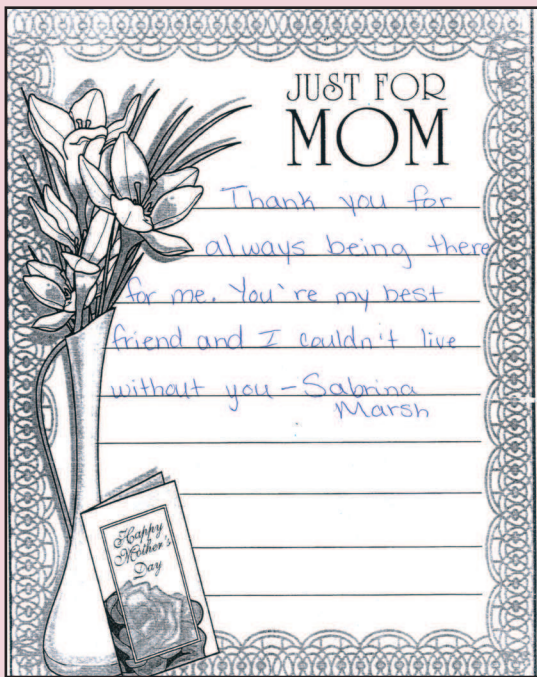 JUST FOR
MOM
Thank you for
always being there
for me. You're my best
friend and I couldn't live
without you - Sabrina
Marsh
Happy
Mother's
Day